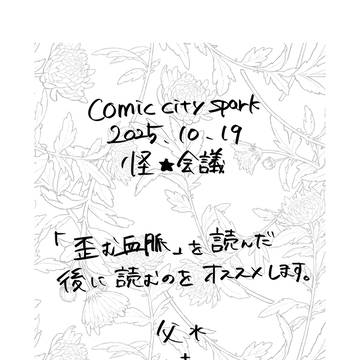 Comic city spark
2025.10.19
怪★会議
「歪む血脈」を読んだ
後に読むのをオススメします。
父水
+